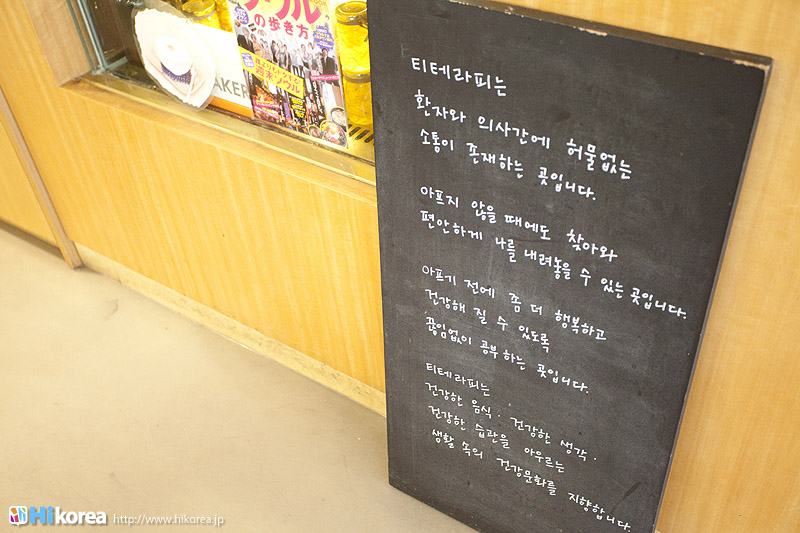 の歩き方
AKER
티테라피는
환자와 의사간에 허물없는
소통이 존재하는 곳입니다.
아프지 않을 때에도 찾아와
편안하게 나를 내려놓을 수 있는 곳입니다.
아프기 전에 좀 더 행복하고
건강해 질 수 있도록
끊임없이 공부하는 곳입니다.
티테라피는
건강한 음식·건강한 생각·
건강한 습관을 아우르는
생활 속의 건강문화를 지향합니다.
Hikorea http://www.hikorea.jp